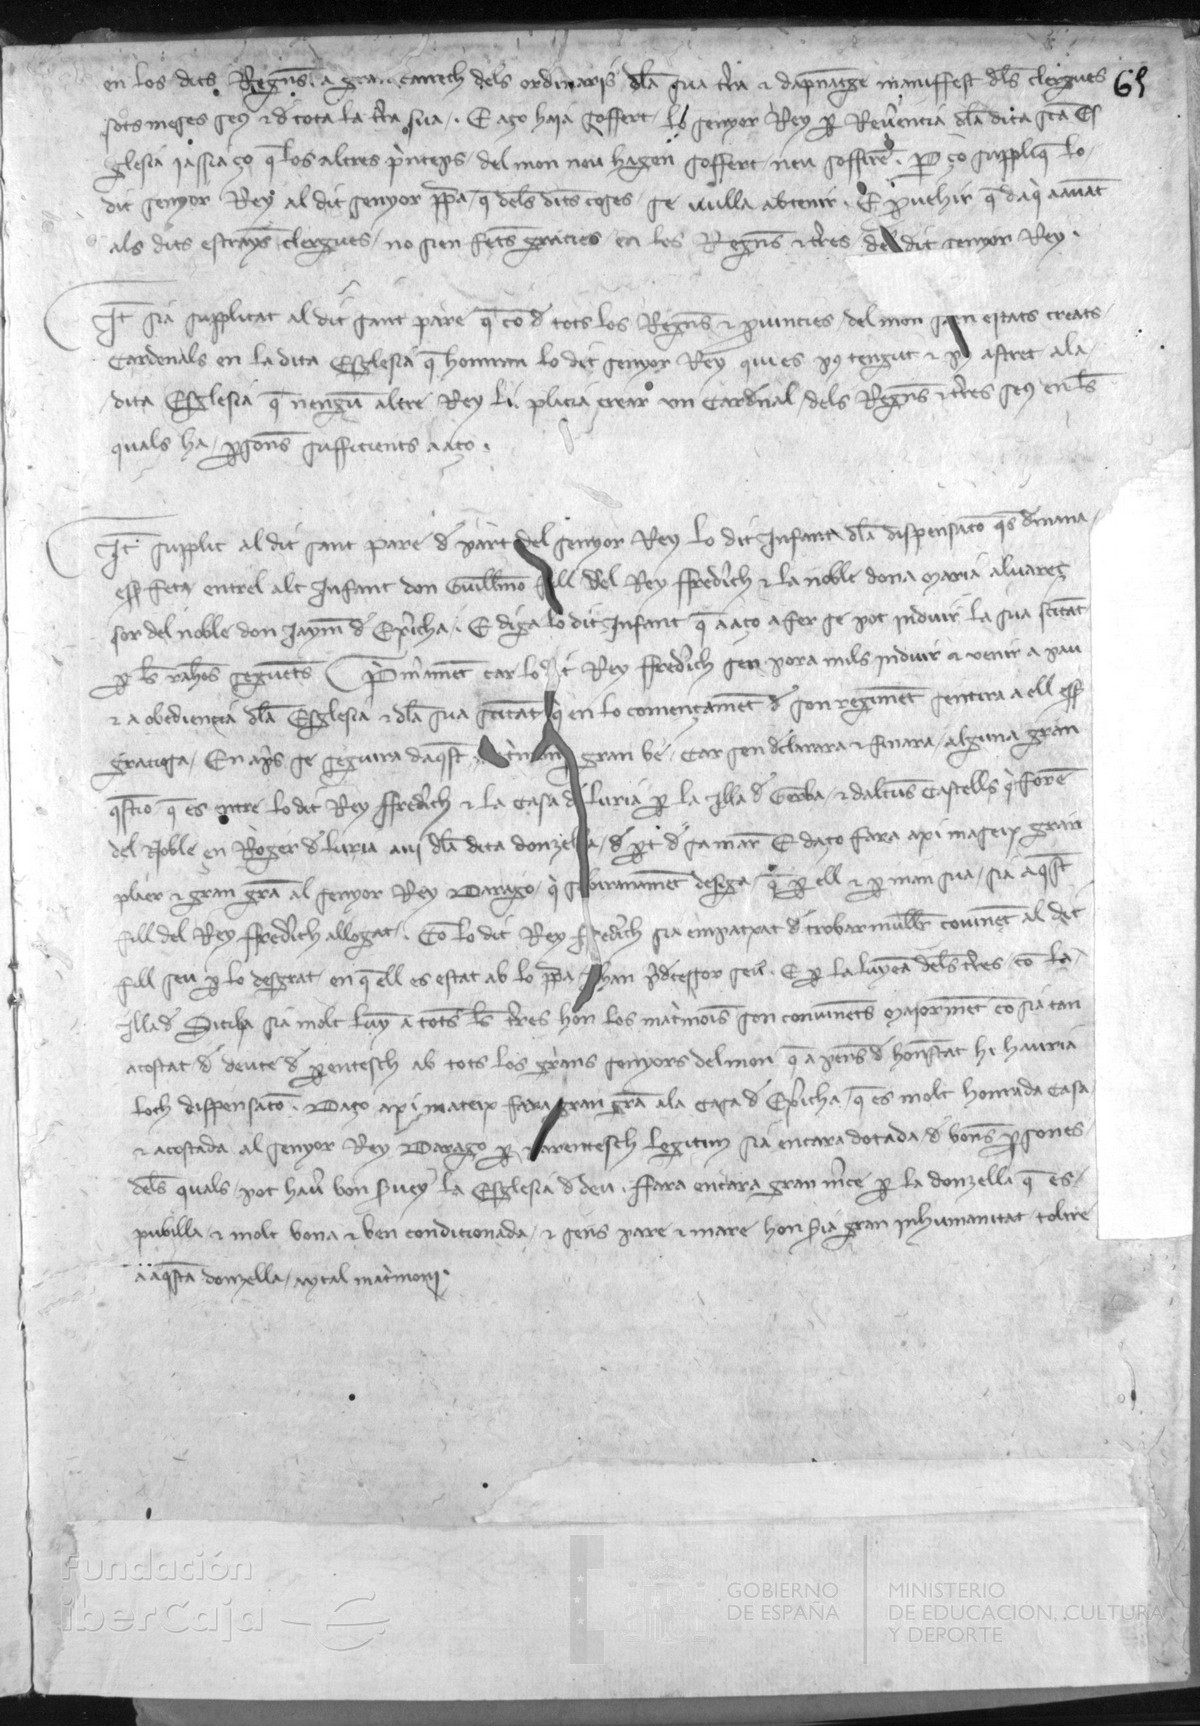 en los dits Regn̄s. a gran carrech dels ordinaris dl̄a sua tr̄a ⁊ dapnatge manuffest dl̄s clergues 65
sots meses seus ⁊ d̄ tota la tr̄a sua. E aço haja soffert lo senyor Rey ꝑ Reverencia dl̄a dita sc̄a Es
glesia jassia ço q̄ los altres prínceps del mon nou hagen soffert neu soffirē. Ꝑ ço suppliq̄ lo
dit senyor Rey al dit senyor pp̄a q̄ dels dits coses se vulla abtenir. E ꝓvehir q̄ daq̀ auant
als dits estrayns clergues no sien fets gracies en los Regn̄s ⁊ tr̄es del dit senyor Rey.
It̄ sia supplicat al dit sant pare q̄ cō d̄ tots los Regn̄s ⁊ ꝓuincies del mon sien estats creats
Cardenals en la dita Esglesia q̄ honrran lo dit senyor Rey qui es pus tengut ⁊ pus astret ala
dita Esglesia q̄ nengū altre Rey li placia crear un Cardenal dels Regn̄s ⁊ tr̄es seus en ls̄
quals ha ꝑsones sufficients a aço.
It̄ supplic al dit sant pare d̄ part del senyor Rey lo dit Infant dl̄a dispensacō q̄s demana
esser feta entrel alt Infant don Guillm̄o fill del Rey ffrederich ⁊ la noble dona maria aluareç
sor del noble don Jaym̄ d̄ Exericha. E diga lo dit Infant q̄ a aço a fer se pot induir la sua sc̄itat
ꝑ ls̄ rahōs seguents Primamēt car lo dit Rey ffrederich sen pora mils induir ⁊ venir a pau
⁊ a obediencia dl̄a Esglesia ⁊ dl̄a sua sc̄itat q̄ en lo començamēt d̄ son regimēt sentira a ell esser
graciosa. En aprs̄ se seguira daq̄st gran be. Car sen declarara ⁊ finara alguna gran
q̄stio q̄ es entre lo dit Rey ffrederich ⁊ la Casa d̄ luria ꝑ la illa d̄ Gerba ⁊ daltrus castells q̄ forē
del Noble en Roger d̄ luria aui dl̄a dita donzella d̄ ꝑt d̄ sa mare E daço fara axi mateix gran
plaer ⁊ gran gr̄a al senyor Rey Darago q̄ sobiranamēt desiga q̄ ꝑ ell ⁊ ꝑ man sua sia aq̄st
fill del Rey ffrederich allogat. Cō lo dit Rey frederich sia empatxat d̄ trobar mullr̄ couinēt al dit
fill seu ꝑ lo desgrat en q̄ ell es estat ab lo pp̄a Johan p̄dcessor seu. E ꝑ la lunyea dels tr̄es cō la
illa d̄ Sicilia sia molt luny a tots ls̄ tr̄es hon los matrimonis son couinēts majormēt cō sia tan
acostat d̄ deute d̄ ꝑentesch ab tots los grans senyors del mon q̄ a penes d̄ honestat hi hauria
loch dispensacō. Daço axi mateix fara gran gr̄a ala casa d̄ Exericha q̄ es molt honrada Casa
⁊ acostada al senyor Rey Darago ꝑ parentesch legitim sia encara dotada d̄ bones ꝑsones
dels quals pot hauer bon seruey la Esglesia d̄ deu. ffara encara gran mr̄ce ꝑ la donzella q̄ es
pubilla ⁊ molt bona ⁊ ben condicionada ⁊ sens pare ⁊ mare hon seria gran inhumanitat toltre
a aq̄sta donzella aytal matrimoni.
Fundación
iberCaja
GOBIERNO
DE ESPAÑA
MINISTERIO
DE EDUCACIÓN, CULTURA
Y DEPORTE